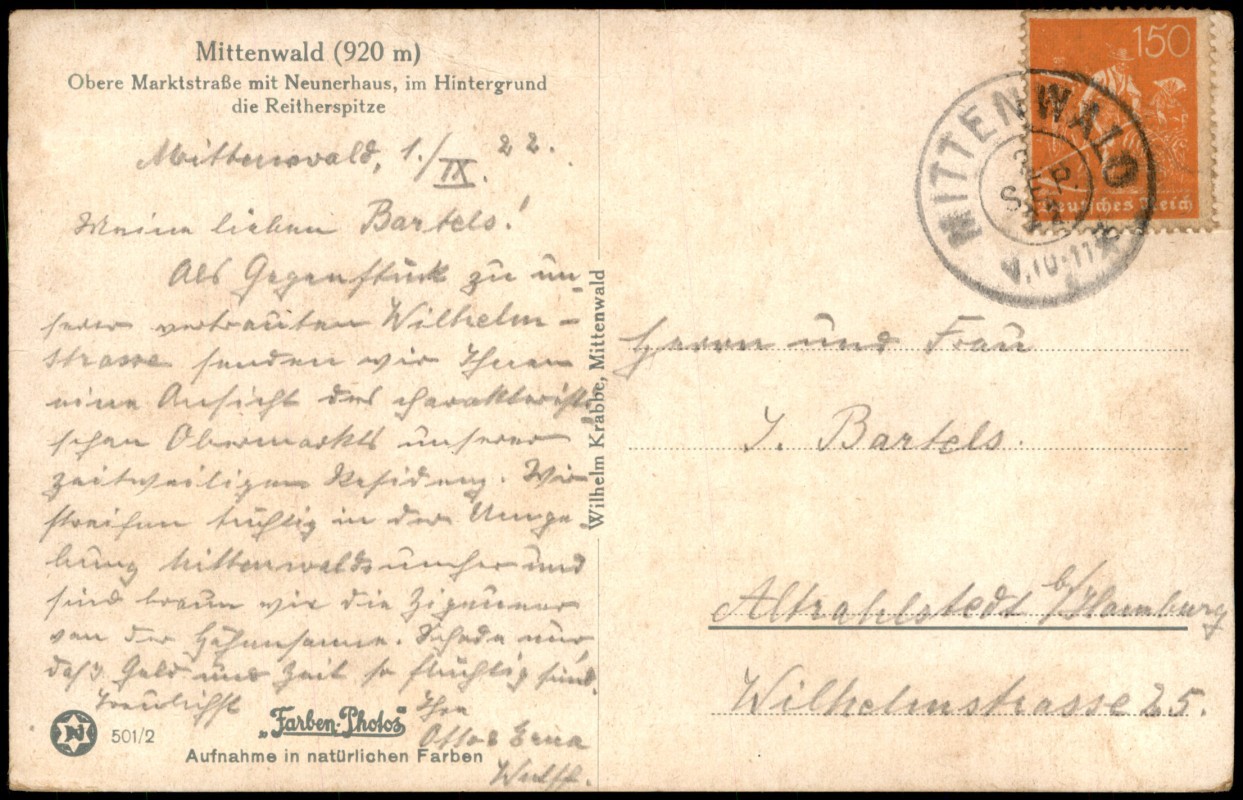 Mittenwald (920 m)
Obere Marktstraße mit Neunerhaus, im Hintergrund
die Reitherspitze
Mittenwald, 1./IX. 22.
Meine lieben Bartels!
Als Gegenstück zu un-
serer vertrauten Wilhelm-
strasse senden wir Ihnen
eine Ansicht des charakteristi-
schen Obermarkts unserer
zeitweiligen Residenz. Wir
streifen tüchtig in der Umge-
bung Mittenwalds umher und
sind braun wie die Zigeuner
von der Höhensonne. Schade nur,
daß Geld und Zeit so flüchtig sind.
Treulichst
Ihre
Otto & Erna
Wulff.
501/2
„Farben-Photos"
Aufnahme in natürlichen Farben
Wilhelm Krabbe, Mittenwald
150
Deutsches Reich
MITTENWALD
SEP.
V.10-11
Herrn und Frau
J. Bartels.
Altrahlstedt b/Hamburg
Wilhelmstrasse 25.